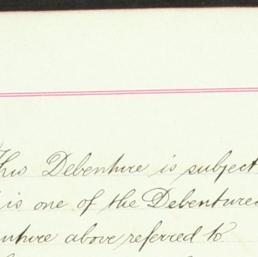 This Debenture is subject
is one of the Debentures
nture above referred to